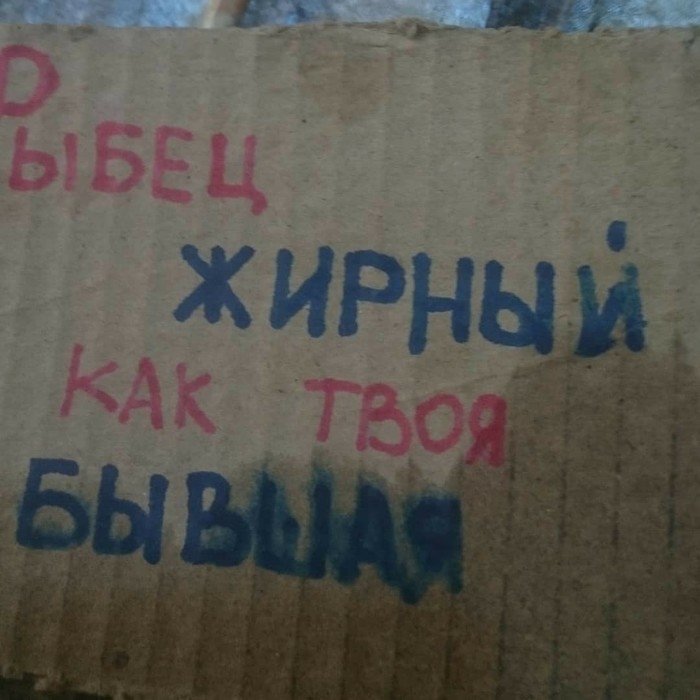 ЫБЕЦ
ЖИРНЫЙ
КАК ТВОЯ
БЫВШАЯ